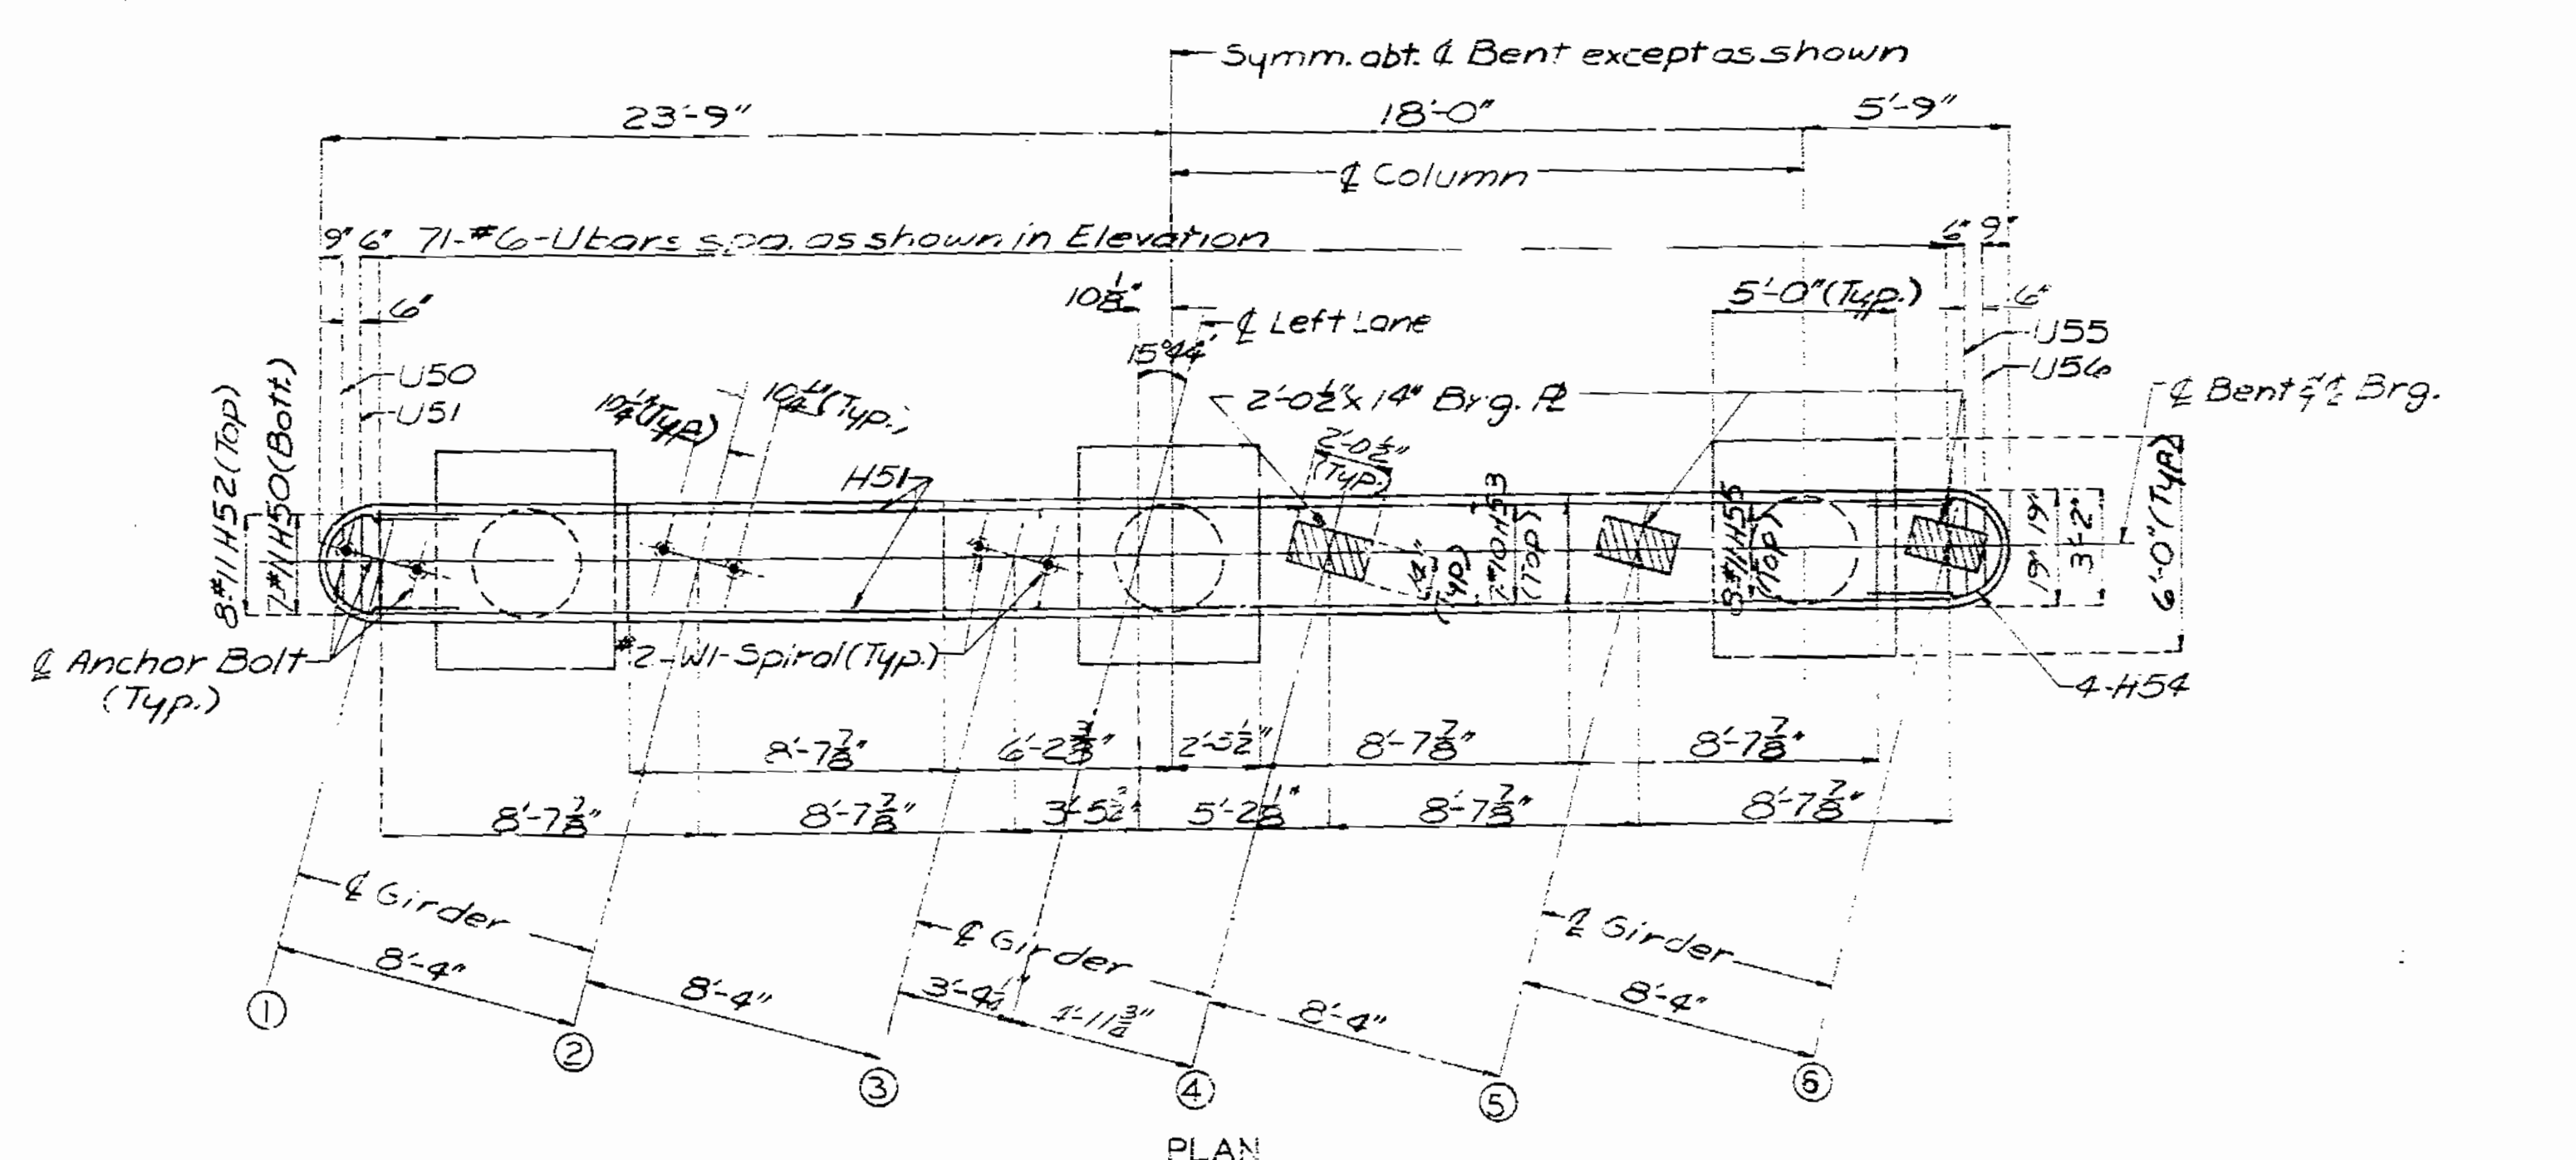 Symm. abt. ℄ Bent except as shown
23'-9" 18'-0" 5'-9"
℄ Column
9" 6" 71-#6-Ubars spa. as shown in Elevation 6" 9"
6" 10 1/8" 5'-0" (Typ.) 6"
℄ Left Lane
15°44'
U55
U50 U56
10 1/4" (Typ.) 10 1/4" (Typ.) 2'-0 1/2" x 14" Brg. ℄ ℄ Bent & ℄ Brg.
U51
8-#11 H52 (Top)
7-#11 H50 (Bott.)
2'-0 1/2"
(Typ.)
H51
14"
(Typ.)
(Top)
8-#11 H55
(Top)
19" 19"
3'-2"
6'-0" (Typ.)
℄ Anchor Bolt
(Typ.)
#2-W1-Spiral (Typ.)
4-H54
8'-7 7/8" 6'-2 3/8" 2'-5 1/2" 8'-7 7/8" 8'-7 7/8"
8'-7 7/8" 8'-7 7/8" 5'-2 1/8" 8'-7 7/8" 8'-7 7/8"
℄ Girder ℄ Girder ℄ Girder
8'-4" 8'-4" 4'-11 3/4" 8'-4" 8'-4"
1 2 3 4 5 6
PLAN